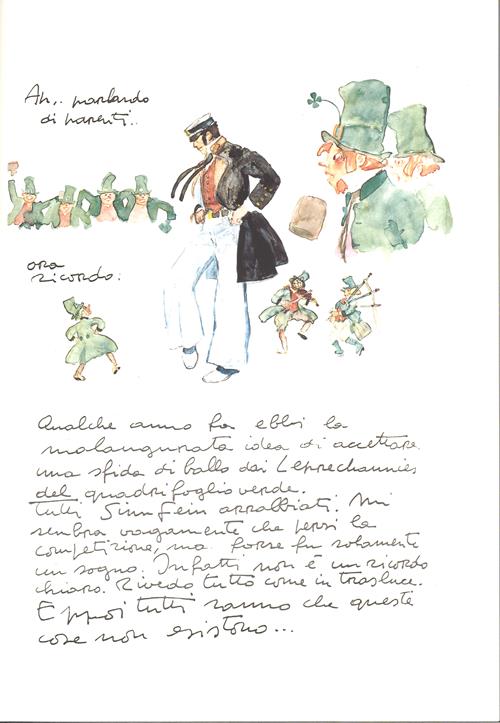 Ah,. parlando
di parenti..
ora
ricordo.
Qualche anno fa ebbi la
malaugurata idea di accettare
una sfida di ballo dai Leprechaunies
del quadrifoglio verde.
tutti Sinn Fein arrabbiati. Mi
sembra vagamente che persi la
competizione, ma forse fu solamente
un sogno. Infatti non è un ricordo
chiaro. Rivedo tutto come in trasluce.
E ppoi tutti sanno che queste
cose non esistono...